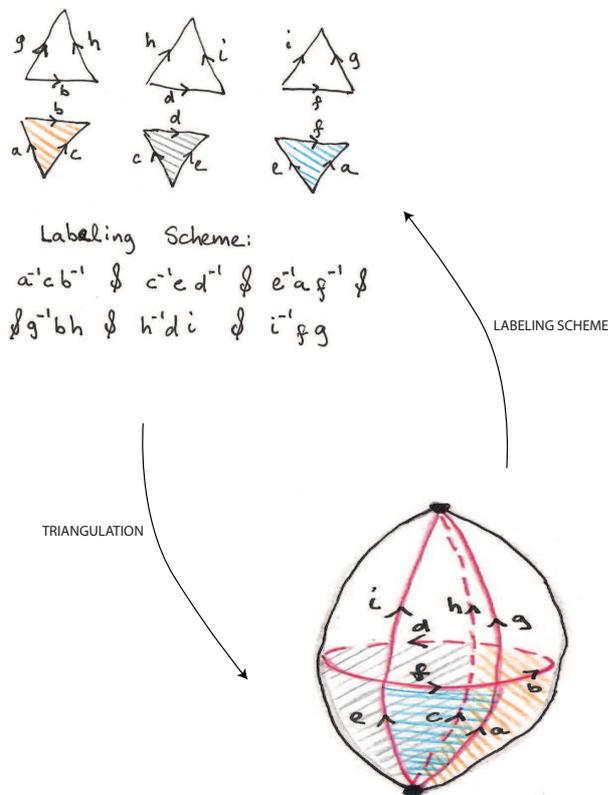 g h h i i g
b d f
b d f
a c c e e a
Labeling Scheme:
a⁻¹cb⁻¹ $ c⁻¹ed⁻¹ $ e⁻¹af⁻¹ $
$g⁻¹bh $ h⁻¹di $ i⁻¹fg
LABELING SCHEME
TRIANGULATION
i h g
d
f
b
e c a